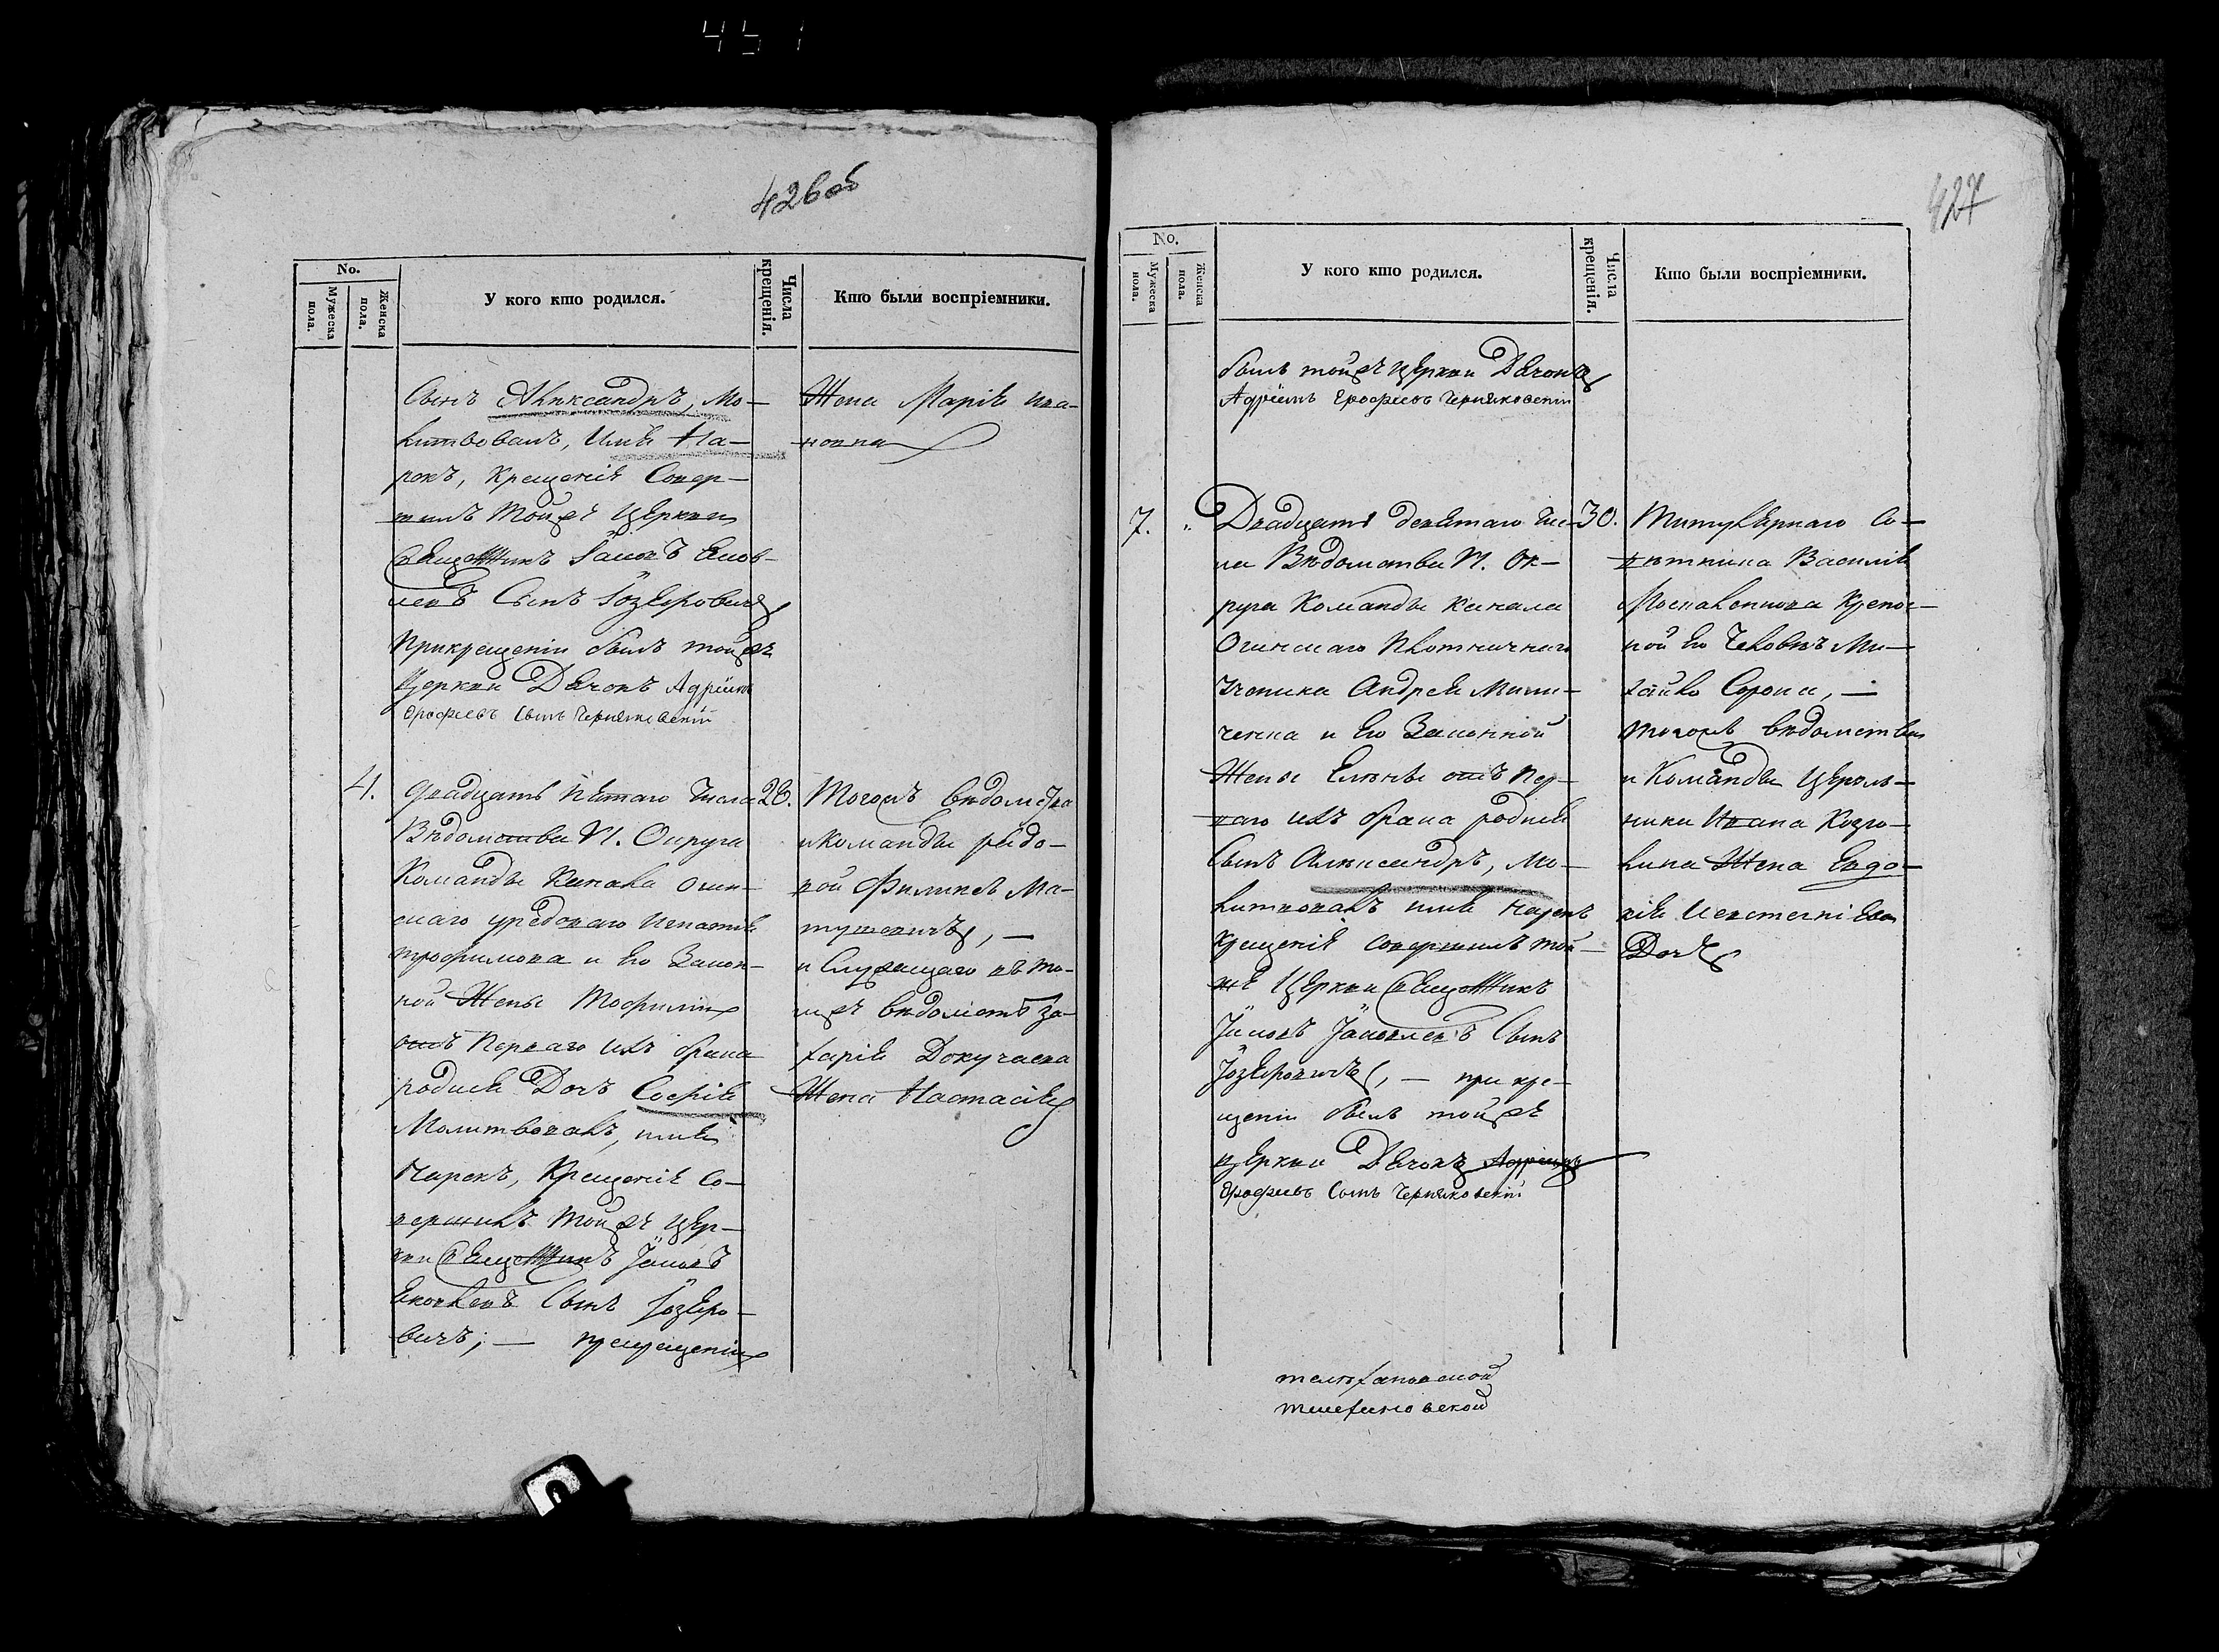 451
426об
No.
Мужеска пола.
Женска пола.
У кого кто родился.
Числа крещенія.
Кто были воспріемники.
Сынъ Александръ, Мо-
литвовалъ, Имя На-
рокъ, Крещеніе Совер-
шилъ Тойже Церкви
Сынъ Іозефовичъ
При крещеніи былъ тойже
Церкви Дячокъ Адріянъ
Ерофѣевъ Сынъ Черняковскій
Жена Марія Ива-
новна
4.
Двадцать пятаго Числа
Вѣдомства П. Округа
Команды Канала Огин-
скаго рядоваго Игнатія
Трофимова и Его Закон-
ной Жены
отъ Перваго ихъ брака
родися Дочъ Софія
Молитвовалъ, имя
Нарекъ, Крещеніе Со-
вершилъ Тойже Цер-
кви
Сынъ Іозефо-
вичъ; —
26.
Тогожъ вѣдомства
и команды рядо-
вой Филипъ Ма-
тушевичъ, —
и Служащаго въ то-
мже вѣдомствѣ За-
харія Докучаева
Жена Настасія
427
No.
Мужеска пола.
Женска пола.
У кого кто родился.
Числа крещенія.
Кто были воспріемники.
былъ тойже Церкви Дячокъ
Адріянъ Ерофѣевъ Черняковскій
7.
"
Двадцать девятаго Чис-
ла Вѣдомства П. Ок-
руга Команды Канала
Огинскаго Плотничнаго
Ученика Андрея Мини-
ченка и Его Законной
Жены Елены отъ Пер-
ваго ихъ брака родися
Сынъ Александръ, Мо-
литвовалъ имя нарекъ
Крещеніе совершилъ той-
же Церкви
Сынъ
Іозефовичъ, — при кре-
щеніи былъ тойже
церкви Дячокъ Адріянъ
Ерофѣевъ Сынъ Черняковскій
30.
Титулярнаго Со-
вѣтника Василія
Крепос-
ной Его Человѣкъ Ми-
хайло Сорока, —
Тогожъ вѣдомства
и Команды
Ивана Козло-
Жена Евдо-
кія
Дочь